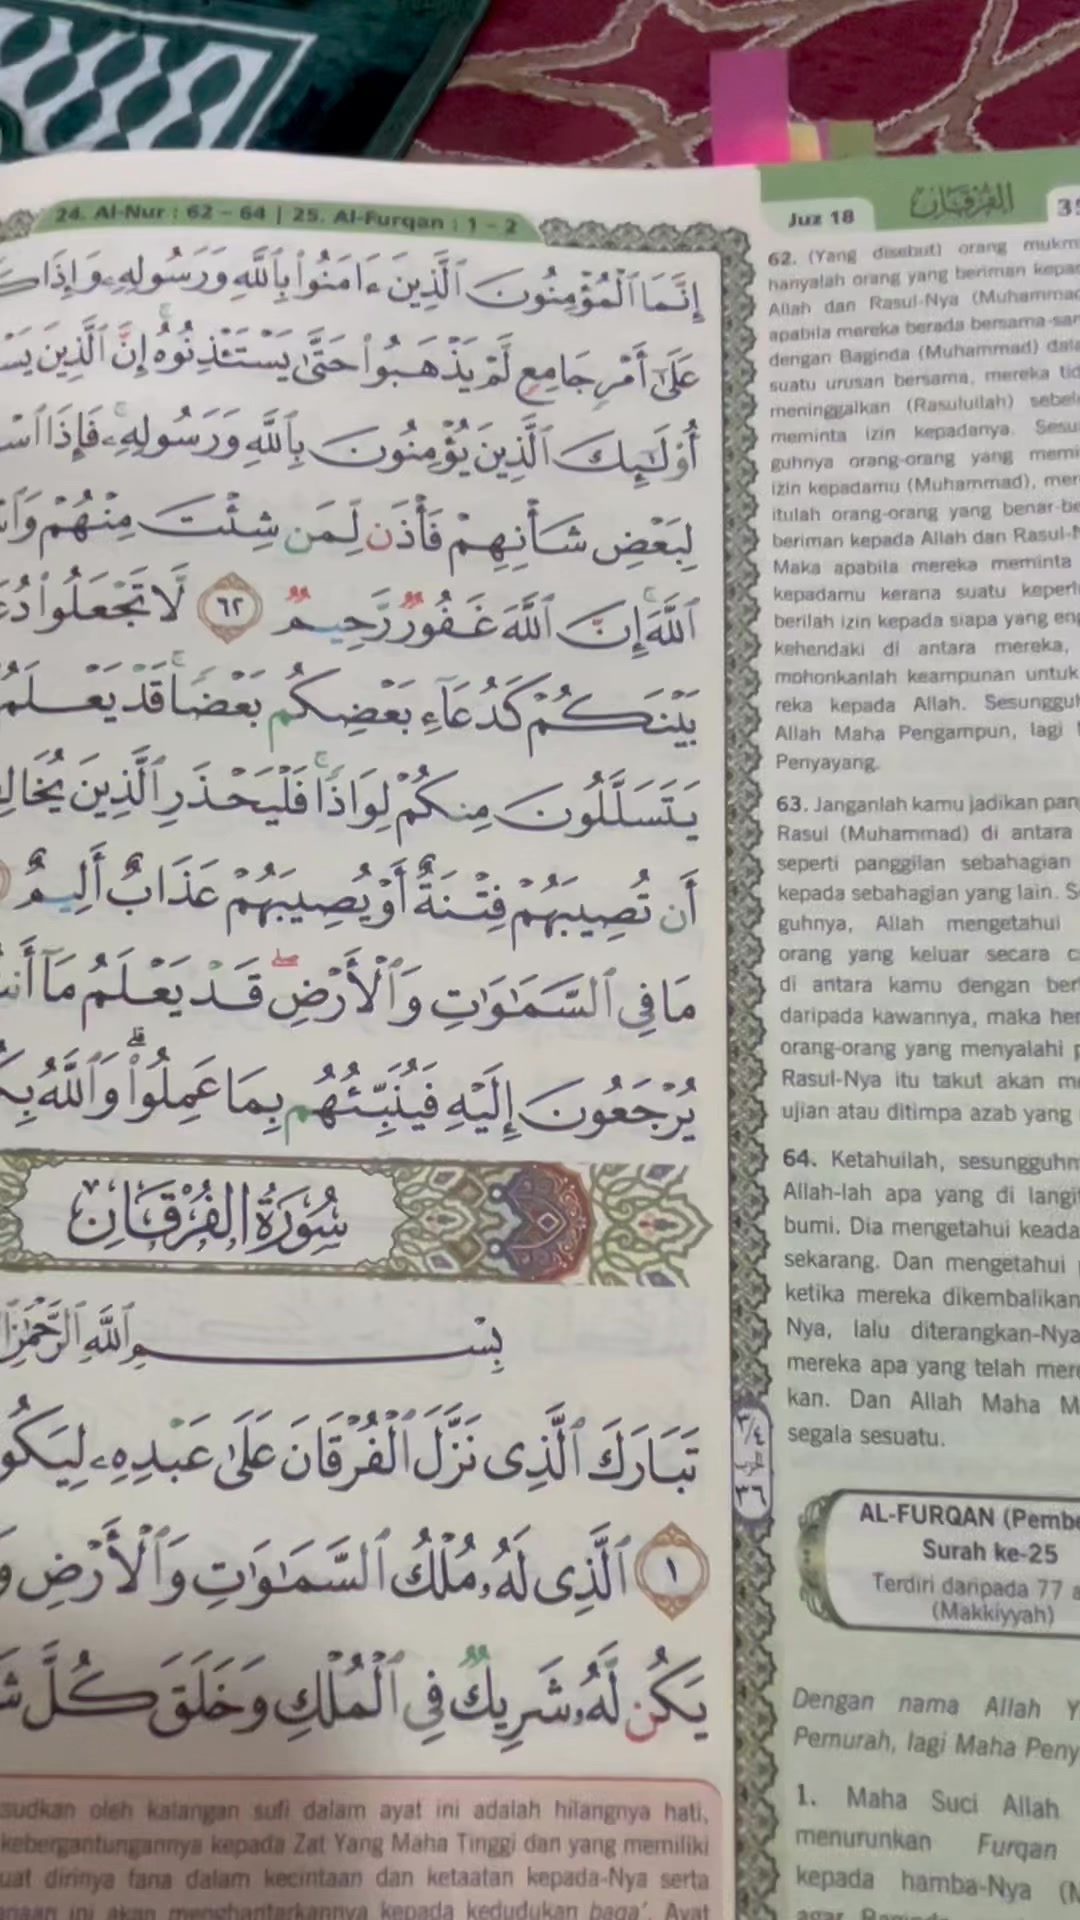 24. Al-Nur : 62 – 64 | 25. Al-Furqan : 1 – 2
إِنَّمَا ٱلْمُؤْمِنُونَ ٱلَّذِينَ ءَامَنُوا۟ بِٱللَّهِ وَرَسُولِهِۦ وَإِذَا
عَلَىٰٓ أَمْرٍ جَامِعٍ لَّمْ يَذْهَبُوا۟ حَتَّىٰ يَسْتَـْٔذِنُوهُ ۚ إِنَّ ٱلَّذِينَ
أُو۟لَـٰٓئِكَ ٱلَّذِينَ يُؤْمِنُونَ بِٱللَّهِ وَرَسُولِهِۦ ۚ فَإِذَا
لِبَعْضِ شَأْنِهِمْ فَأْذَن لِّمَن شِئْتَ مِنْهُمْ
ٱللَّهَ ۚ إِنَّ ٱللَّهَ غَفُورٌ رَّحِيمٌ ٦٢ لَّا تَجْعَلُوا۟
بَيْنَكُمْ كَدُعَآءِ بَعْضِكُم بَعْضًا ۚ قَدْ يَعْلَمُ
يَتَسَلَّلُونَ مِنكُمْ لِوَاذًا ۚ فَلْيَحْذَرِ ٱلَّذِينَ
أَن تُصِيبَهُمْ فِتْنَةٌ أَوْ يُصِيبَهُمْ عَذَابٌ أَلِيمٌ
مَا فِى ٱلسَّمَـٰوَٰتِ وَٱلْأَرْضِ ۖ قَدْ يَعْلَمُ مَآ
يُرْجَعُونَ إِلَيْهِ فَيُنَبِّئُهُم بِمَا عَمِلُوا۟ ۗ وَٱللَّهُ
سُورَةُ الفُرْقَانِ
بِسْمِ ٱللَّهِ ٱلرَّحْمَـٰنِ
تَبَارَكَ ٱلَّذِى نَزَّلَ ٱلْفُرْقَانَ عَلَىٰ عَبْدِهِۦ
١ ٱلَّذِى لَهُۥ مُلْكُ ٱلسَّمَـٰوَٰتِ وَٱلْأَرْضِ
يَكُن لَّهُۥ شَرِيكٌ فِى ٱلْمُلْكِ وَخَلَقَ كُلَّ
sudkan oleh kalangan sufi dalam ayat ini adalah hilangnya hati,
kebergantungannya kepada Zat Yang Maha Tinggi dan yang memiliki
uat dirinya fana dalam kecintaan dan ketaatan kepada-Nya serta
ini akan menghantarkannya kepada kedudukan baqa'. Ayat
٣/٤
٣٦
Juz 18
الفرقان
62. (Yang disebut) orang
hanyalah orang yang beriman
Allah dan Rasul-Nya
apabila mereka berada
dengan Baginda (Muhammad)
suatu urusan bersama, mereka
meninggalkan (Rasulullah)
meminta izin kepadanya.
guhnya orang-orang yang
izin kepadamu (Muhammad),
itulah orang-orang yang
beriman kepada Allah dan
Maka apabila mereka meminta
kepadamu kerana suatu
berilah izin kepada siapa yang
kehendaki di antara mereka,
mohonkanlah keampunan untuk
reka kepada Allah.
Allah Maha Pengampun, lagi
Penyayang.
63. Janganlah kamu jadikan
Rasul (Muhammad) di antara
seperti panggilan sebahagian
kepada sebahagian yang lain.
guhnya, Allah mengetahui
orang yang keluar secara
di antara kamu dengan
daripada kawannya, maka
orang-orang yang menyalahi
Rasul-Nya itu takut akan
ujian atau ditimpa azab yang
64. Ketahuilah,
Allah-lah apa yang di
bumi. Dia mengetahui
sekarang. Dan mengetahui
ketika mereka dikembalikan
Nya, lalu
mereka apa yang telah
kan. Dan Allah Maha
segala sesuatu.
AL-FURQAN
Surah ke-25
Terdiri daripada 77
(Makkiyyah)
Dengan nama Allah
Pemurah, lagi Maha
1. Maha Suci Allah
menurunkan Furqan
kepada hamba-Nya
agar